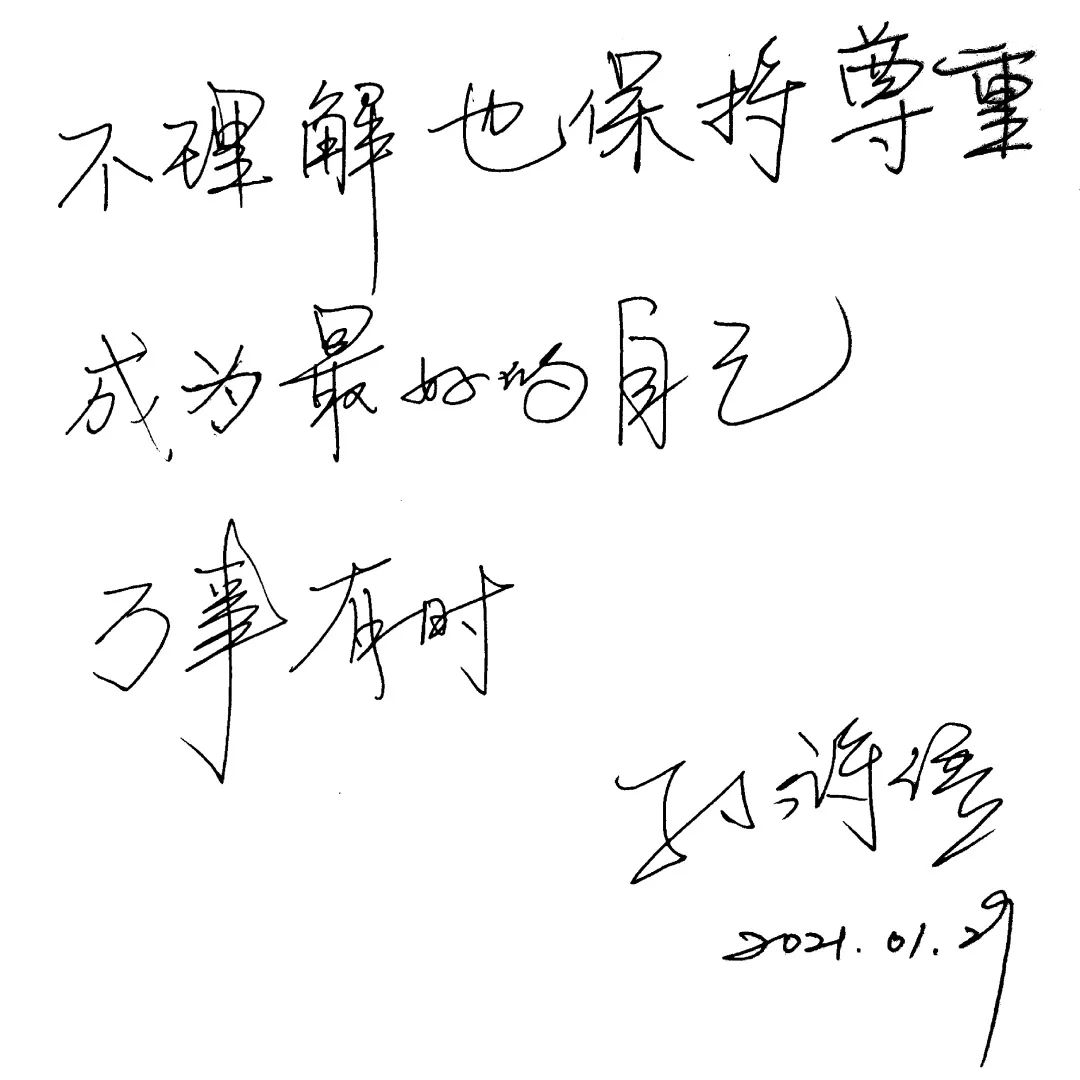 不理解也保持尊重
成为最好的自己
万事有时
孙诗
2021.01.29